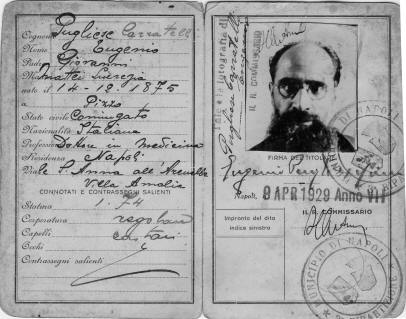 Cognome Pugliese Carratelli
Nome Eugenio
Padre Giovanni
Madre Mattei Lucrezia
nato il 14-12-1875
a Pizzo
Stato civile Coniugato
Nazionalità Italiana
Professione Dottore in medicina
Residenza Napoli
Via le S. Anna all'Arenella
Villa Amalia
CONNOTATI E CONTRASSEGNI SALIENTI
Statura 1.74
Corporatura regolare
Capelli castani
Occhi
Contrassegni salienti
Tale è la fotografia di
Pugliese Carratelli
Eugenio
IL R. COMMISSARIO
FIRMA DEL TITOLARE
Eugenio Pugliese
Napoli, 9 APR 1929 Anno VII
Impronta del dito
indice sinistro
IL R. COMMISSARIO
MUNICIPIO DI NAPOLI
MUNICIPIO DI NAPOLI